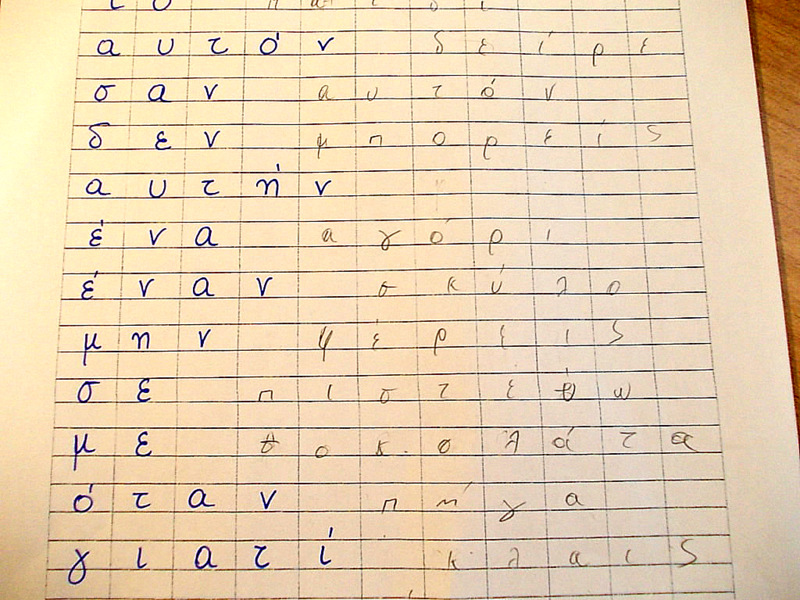 αυτόν δείρε
σαν αυτόν
δεν μπορείς
αυτήν
ένα αγόρι
έναν σκύλο
μην ψέρεις
σε πιστεθω
με
όταν πήγα
γιατί κλαις